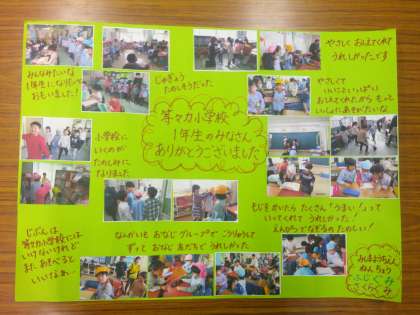 みんなみたいな
1年生になりたいって
おもいました!
じゅぎょう
たのしそうだった
やさしく おしえてくれて
うれしかったです
やさしくて
いいにおいがいっぱい
おしえてくれたから もっと
いっしょにあそびたいな
等々力小学校
1年生のみなさん
ありがとうございました
小学校に
いくのが
たのしみに
なりました
もじをかいたら たくさん「うまい!」って
いってくれて うれしかった!
えんぴつでなぞるの たのしい!
じぶんは
等々力小学校には
いけないけれど
また あそべると
いいなぁ…
なんかいも おなじ グループで こうりゅうして
ずっと おなじ おともだちで うれしかった
ようちえん
ねんちょう
ふじぐみ
さくらぐみ